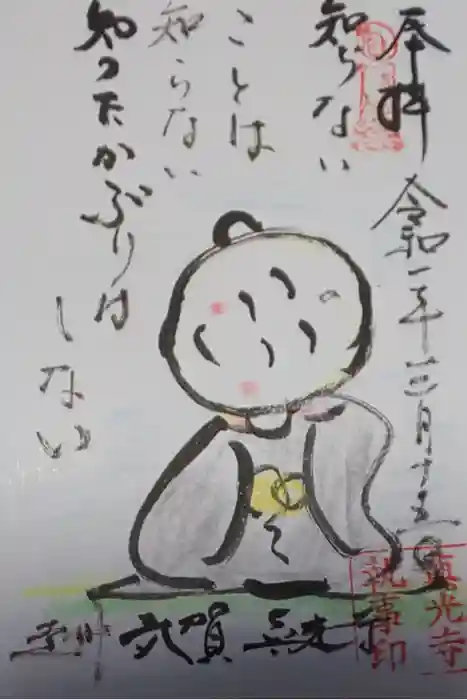 奉拝
令和二年三月十五日
知らない
ことは
知らない
知ったかぶりは
しない
真光寺
執事印